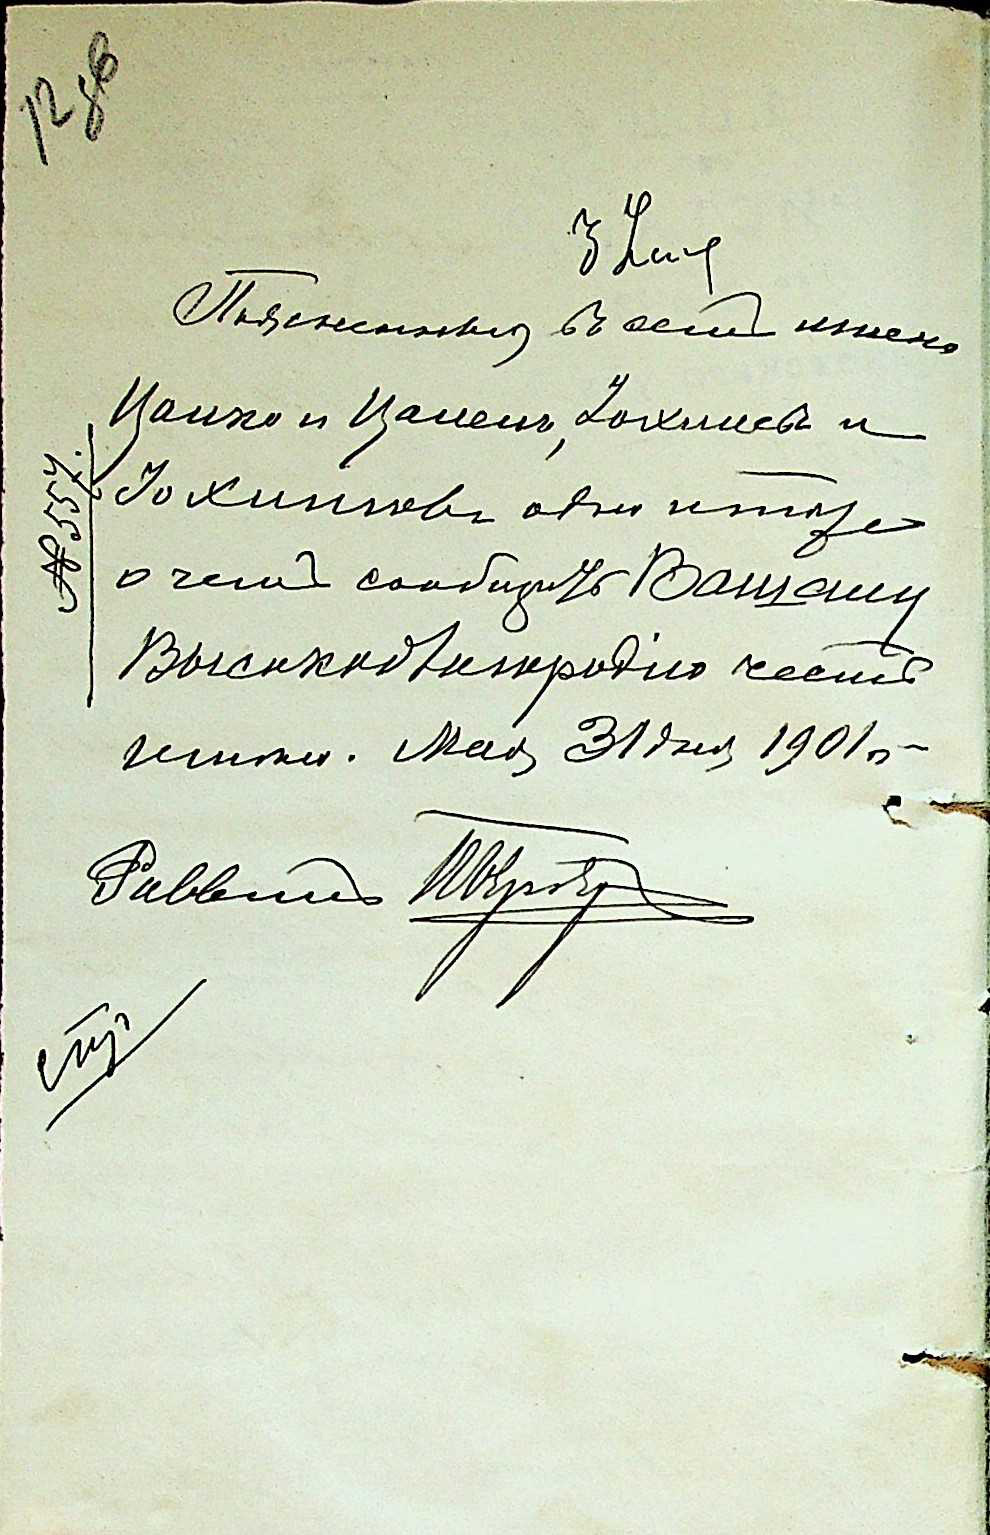 12 об
Поясненныя въ семъ имена
Цалко и Цалель, Іохилевъ и
Іохимовъ одно и тоже
о чемъ сообщить Вашему
Высокоблагородію честь
имѣю. Мая 31 дня 1901 г.
№ 557.
Раввинъ